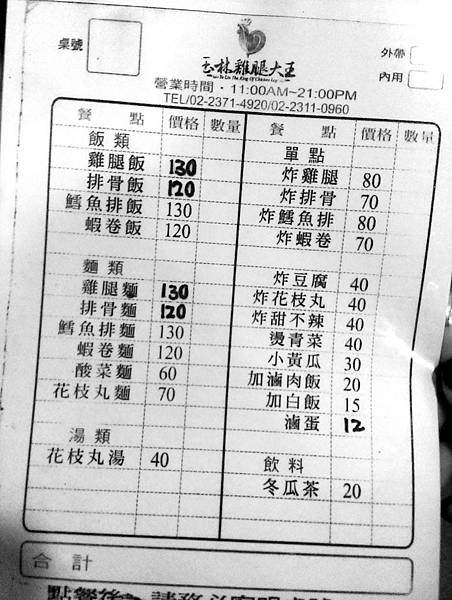 桌號
玉林雞腿大王
Yu Lin The King Of Chicken Leg
外帶
內用
營業時間・11:00AM~21:00PM
TEL/02-2371-4920/02-2311-0960
餐 點 價格 數量
飯類
雞腿飯 130
排骨飯 120
鱈魚排飯 130
蝦卷飯 120
麵類
雞腿麵 130
排骨麵 120
鱈魚排麵 130
蝦卷麵 120
酸菜麵 60
花枝丸麵 70
湯類
花枝丸湯 40
餐 點 價格 數量
單點
炸雞腿 80
炸排骨 70
炸鱈魚排 80
炸蝦卷 70
炸豆腐 40
炸花枝丸 40
炸甜不辣 40
燙青菜 40
小黃瓜 30
加滷肉飯 20
加白飯 15
滷蛋 12
飲料
冬瓜茶 20
合計
點餐後 請務必